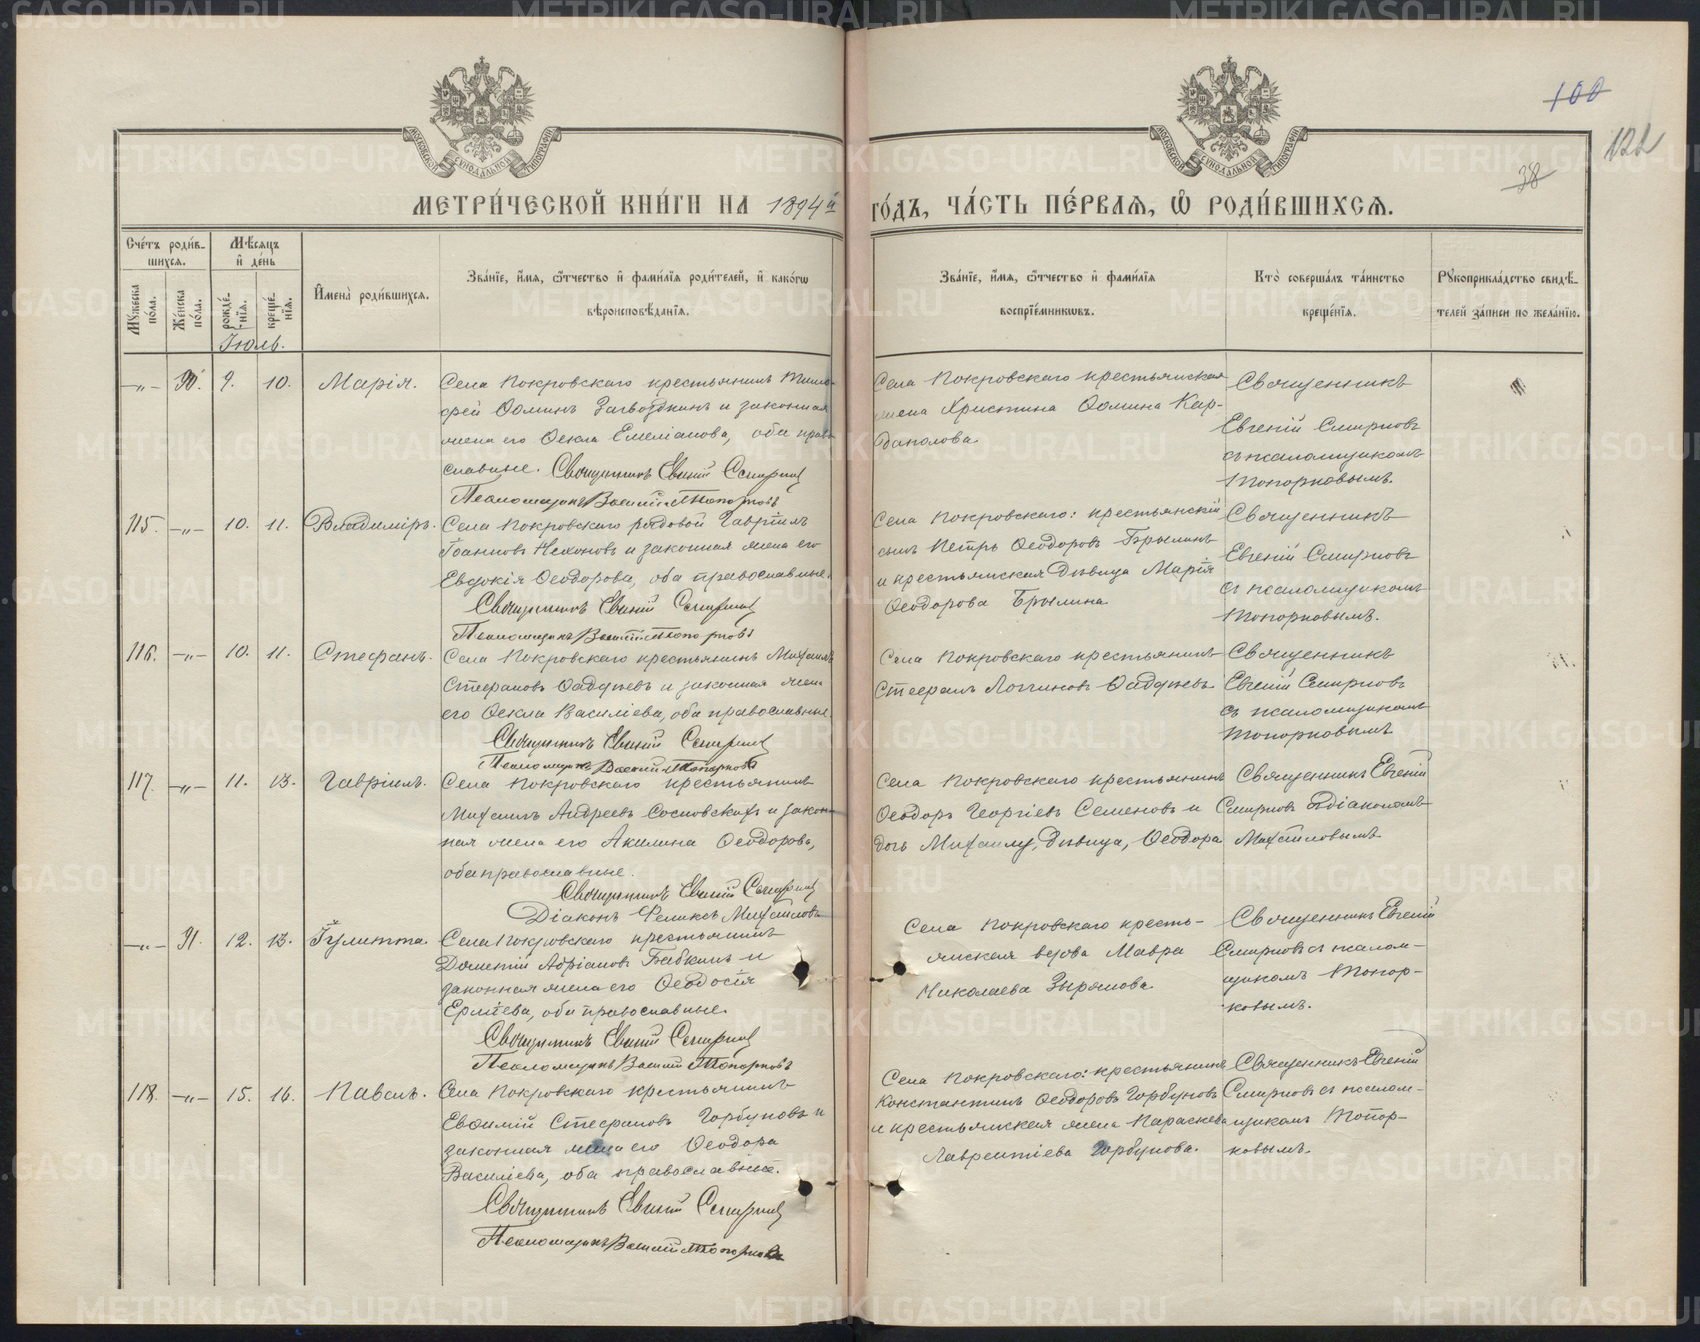 100
122
38
МЕТРИЧЕСКОЙ КНИГИ НА 1894й ГОДЪ, ЧАСТЬ ПЕРВАЯ, Ѡ РОДИВШИХСЯ.
Счетъ родившихся.
Мужеска пола.
Женска пола.
Мѣсяцъ и день
рожденія.
крещенія.
Имена родившихся.
Званіе, имя, ѿчество и фамилія родителей, и какогѡ вѣроисповѣданія.
Званіе, имя, ѿчество и фамилія воспріемникѡвъ.
Кто совершалъ таинство крещенія.
Рукоприкладство свидѣтелей записи по желанію.
Іюль.
—„— 90. 9. 10. Марія.
Села Покровскаго крестьянинъ Тимо-
фей Ѳоминъ Загвоздкинъ и законная
жена его Ѳекла Емеліанова, оба право-
славные. Священникъ Евгеній Смирновъ
Псаломщикъ Василій Топорковъ
Села Покровскаго крестьянская
жена Христина Ѳомина Кар-
Священникъ
Евгеній Смирновъ
съ псаломщикомъ
Топорковымъ.
115. —„— 10. 11. Владиміръ.
Села Покровскаго рядовой Гавріилъ
Іоанновъ и законная жена его
Евдокія Ѳеодорова, оба православные.
Священникъ Евгеній Смирновъ
Псаломщикъ Василій Топорковъ
Села Покровскаго: крестьянскій
сынъ Петръ Ѳеодоровъ Брылинъ
и крестьянская дѣвица Марія
Ѳеодорова Брылина
Священникъ
Евгеній Смирновъ
съ псаломщикомъ
Топорковымъ.
116. —„— 10. 11. Стефанъ.
Села Покровскаго крестьянинъ Михаилъ
Стефановъ Ѳаддѣевъ и законная жена
его Ѳекла Василіева, оба православные.
Священникъ Евгеній Смирновъ
Псаломщикъ Василій Топорковъ
Села Покровскаго крестьянинъ
Стефанъ Логгиновъ Ѳаддѣевъ
Священникъ
Евгеній Смирновъ
съ псаломщикомъ
Топорковымъ
117. —„— 11. 13. Гавріилъ.
Села Покровскаго крестьянинъ
Михаилъ Андреевъ Сосновскихъ и закон-
ная жена его Акилина Ѳеодорова,
оба православные.
Священникъ Евгеній Смирновъ
Діаконъ Феликсъ Михайловъ
Села Покровскаго крестьянинъ
Ѳеодоръ Георгіевъ Семеновъ и
дочь дѣвица, Ѳеодора
Священникъ Евгеній
Смирновъ съ діакономъ
Михайловымъ
—„— 91. 12. 13. Іулитта.
Села Покровскаго крестьянинъ
Дометій Адріановъ Бабкинъ и
законная жена его Ѳеодосія
Ермиева, оба православные.
Священникъ Евгеній Смирновъ
Псаломщикъ Василій Топорковъ
Села Покровскаго кресть-
янская вдова Мавра
Николаева Зырянова
Священникъ Евгеній
Смирновъ съ псалом-
щикомъ Топор-
ковымъ.
118. —„— 15. 16. Павелъ.
Села Покровскаго крестьянинъ
Евѳимій Стефановъ Горбуновъ и
законная жена его Ѳеодора
Василіева, оба православные.
Священникъ Евгеній Смирновъ
Псаломщикъ Василій Топорковъ
Села Покровскаго: крестьянинъ
Константинъ Ѳеодоровъ Горбуновъ
и крестьянская жена Параскева
Лаврентіева Горбунова.
Священникъ Евгеній
Смирновъ съ псалом-
щикомъ Топор-
ковымъ.
METRIKI.GASO-URAL.RU